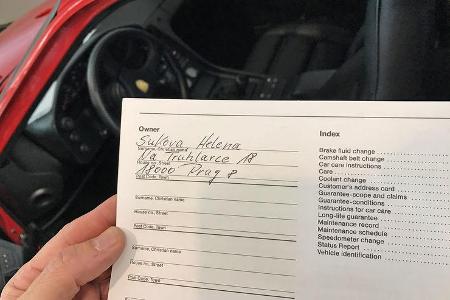 Owner
Sukova Helena
Surname, Christian name
Na Truhlarce 18
House no., Street
18000 Prag 8
Post Code, Town
Surname, Christian name
House no., Street
Post Code, Town
Surname, Christian name
House no., Street
Post Code, Town
Index
Brake fluid change
Camshaft belt change
Car care instructions
Care
Coolant change
Customer's address card
Guarantee-scope and claims
Guarantee-conditions
Instructions for car care
Long-life guarantee
Maintenance record
Maintenance schedule
Speedometer change
Status Report
Vehicle identification